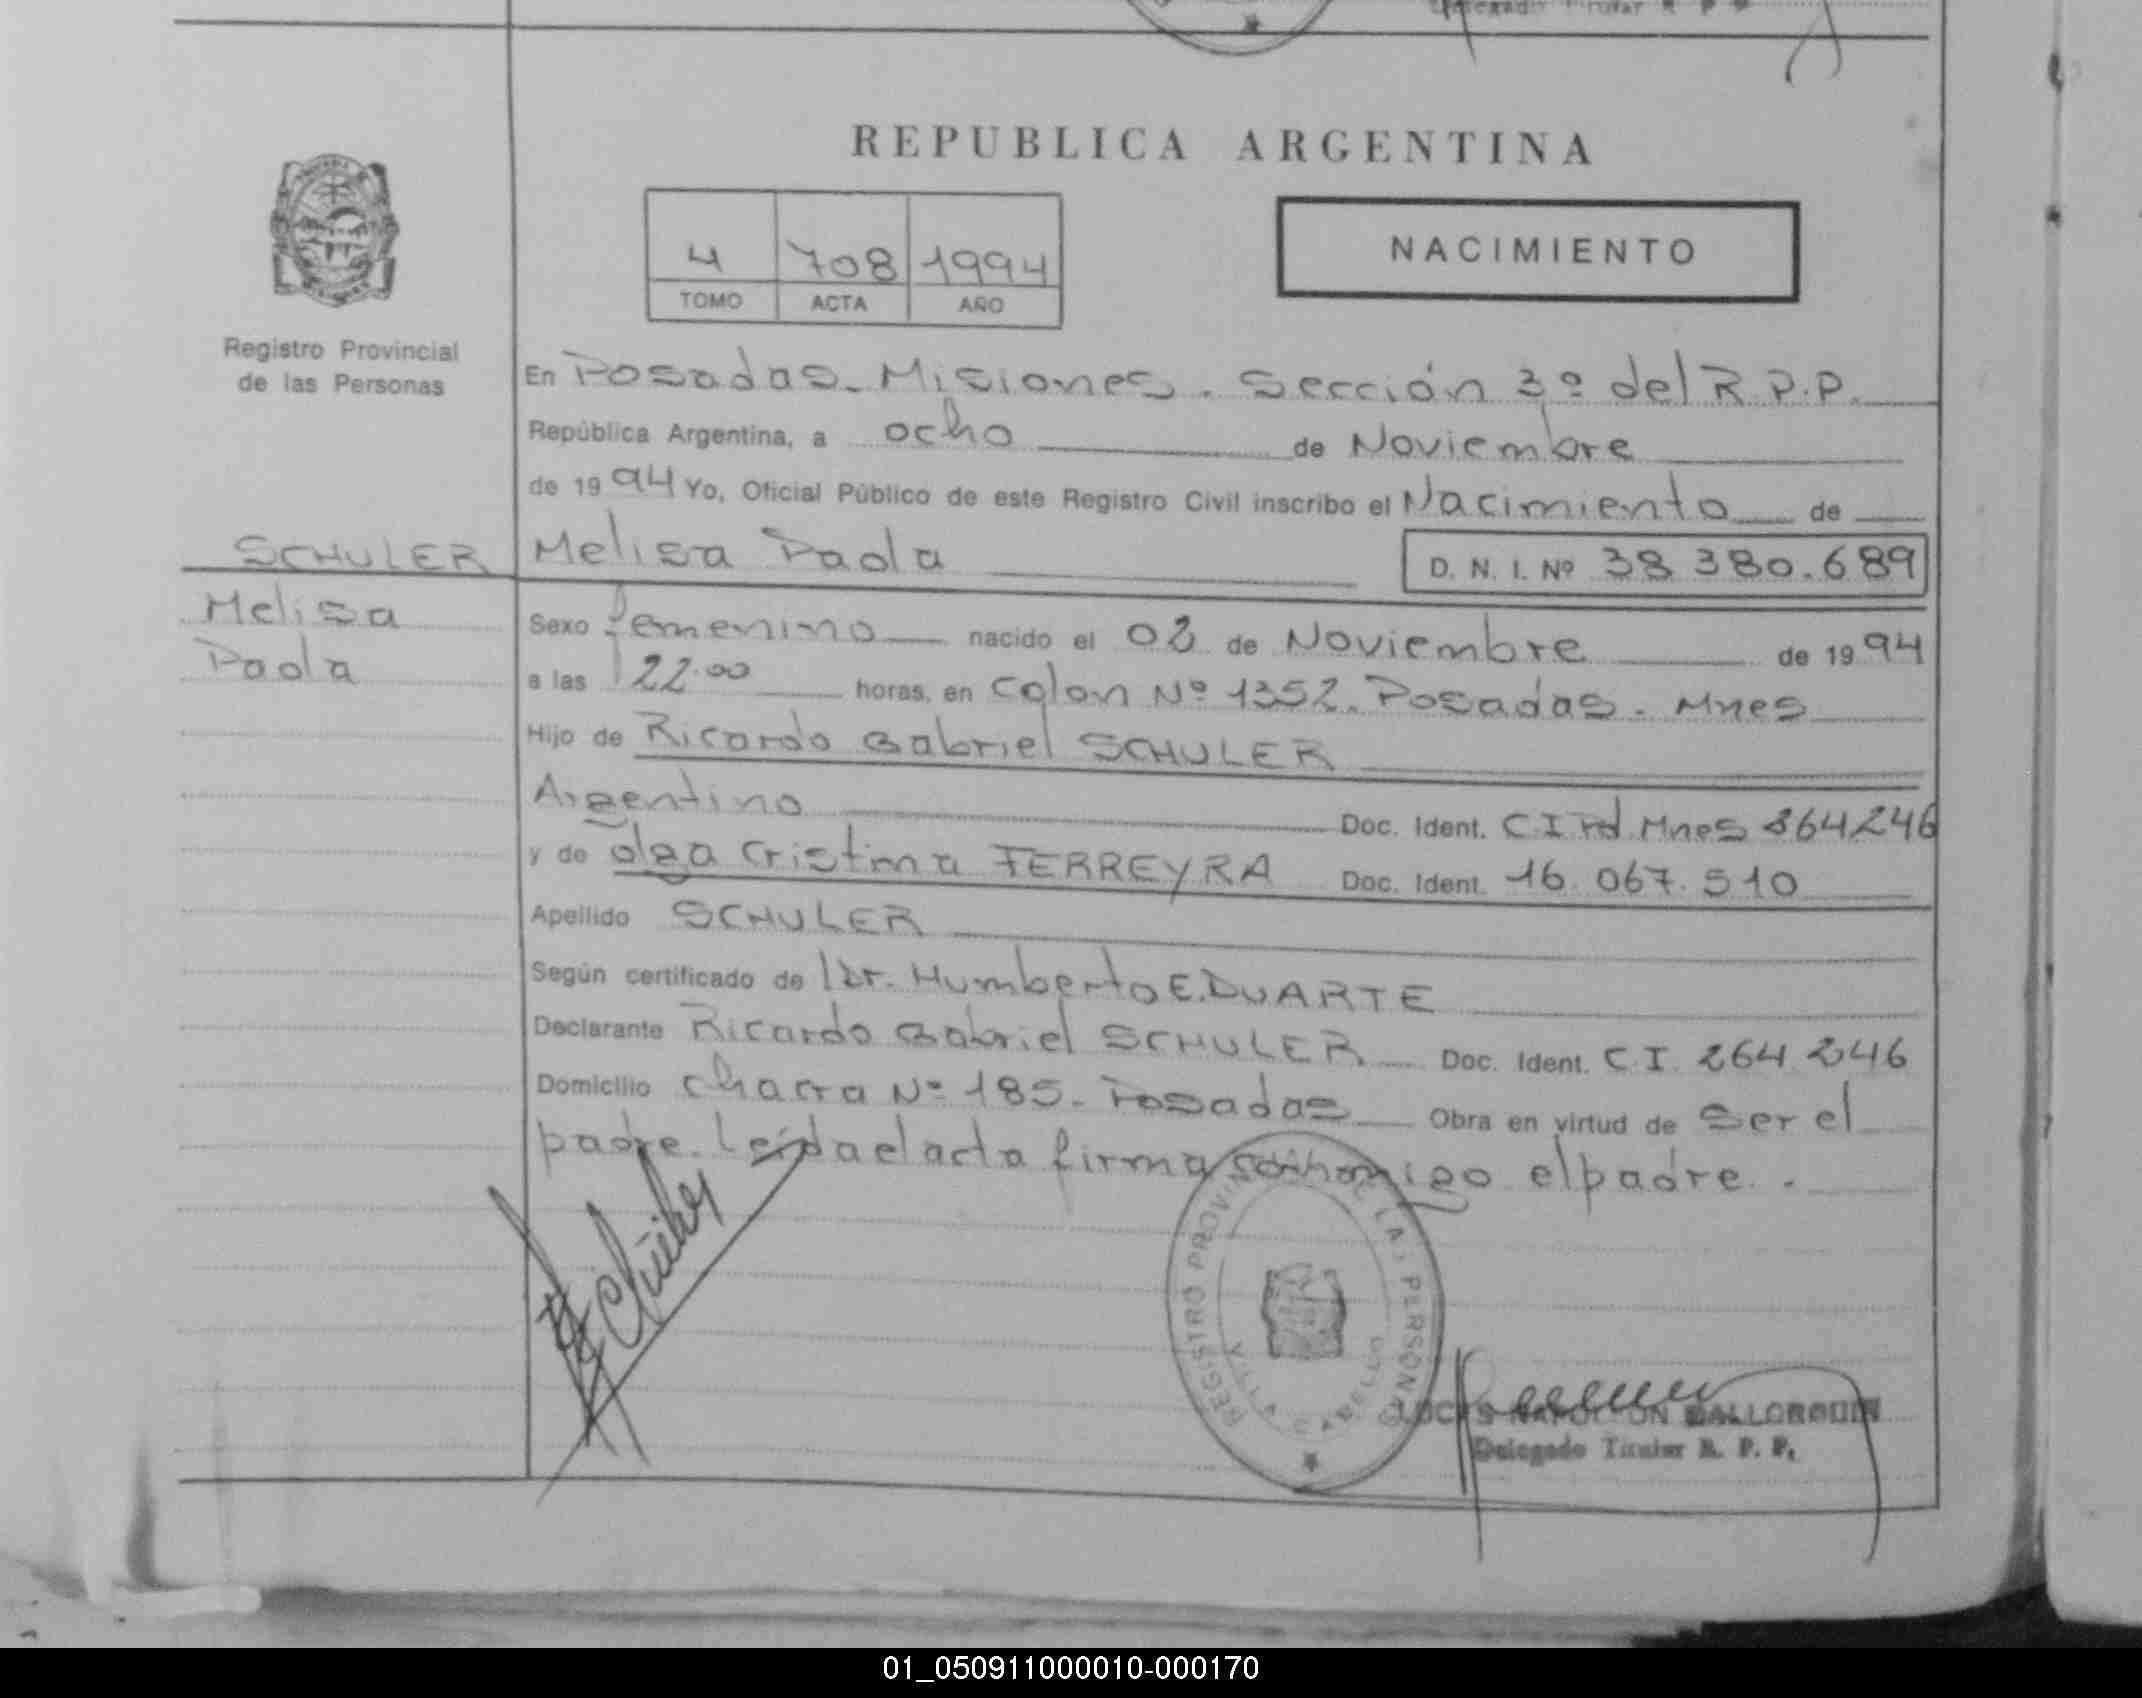 REPUBLICA ARGENTINA
4 708 1994
TOMO ACTA AÑO
NACIMIENTO
Registro Provincial
de las Personas
En Posadas - Misiones. Sección 3º del R.P.P.
República Argentina, a ocho de Noviembre
de 1994 Yo, Oficial Público de este Registro Civil inscribo el Nacimiento de
SCHULER
Melisa
Paola
Melisa Paola D. N. I. Nº 38 380.689
Sexo femenino nacido el 02 de Noviembre de 1994
a las 22.00 horas, en Colon Nº 1352. Posadas. Mnes
Hijo de Ricardo Gabriel SCHULER
Argentino Doc. Ident. C.I Mnes 264246
y de Olga Cristina FERREYRA Doc. Ident. 16.067.510
Apellido SCHULER
Según certificado de Dr. Humberto E. DUARTE
Declarante Ricardo Gabriel SCHULER Doc. Ident. C.I. 264 246
Domicilio Chacra Nº 185. Posadas Obra en virtud de Ser el
padre. Leída el acta firma conmigo el padre.
REGISTRO PROVINCIAL DE LAS PERSONAS
VILLA CABELLO
LUCAS NAPOLEON MALLORQUIN
Delegado Titular R. P. P.
01_050911000010-000170